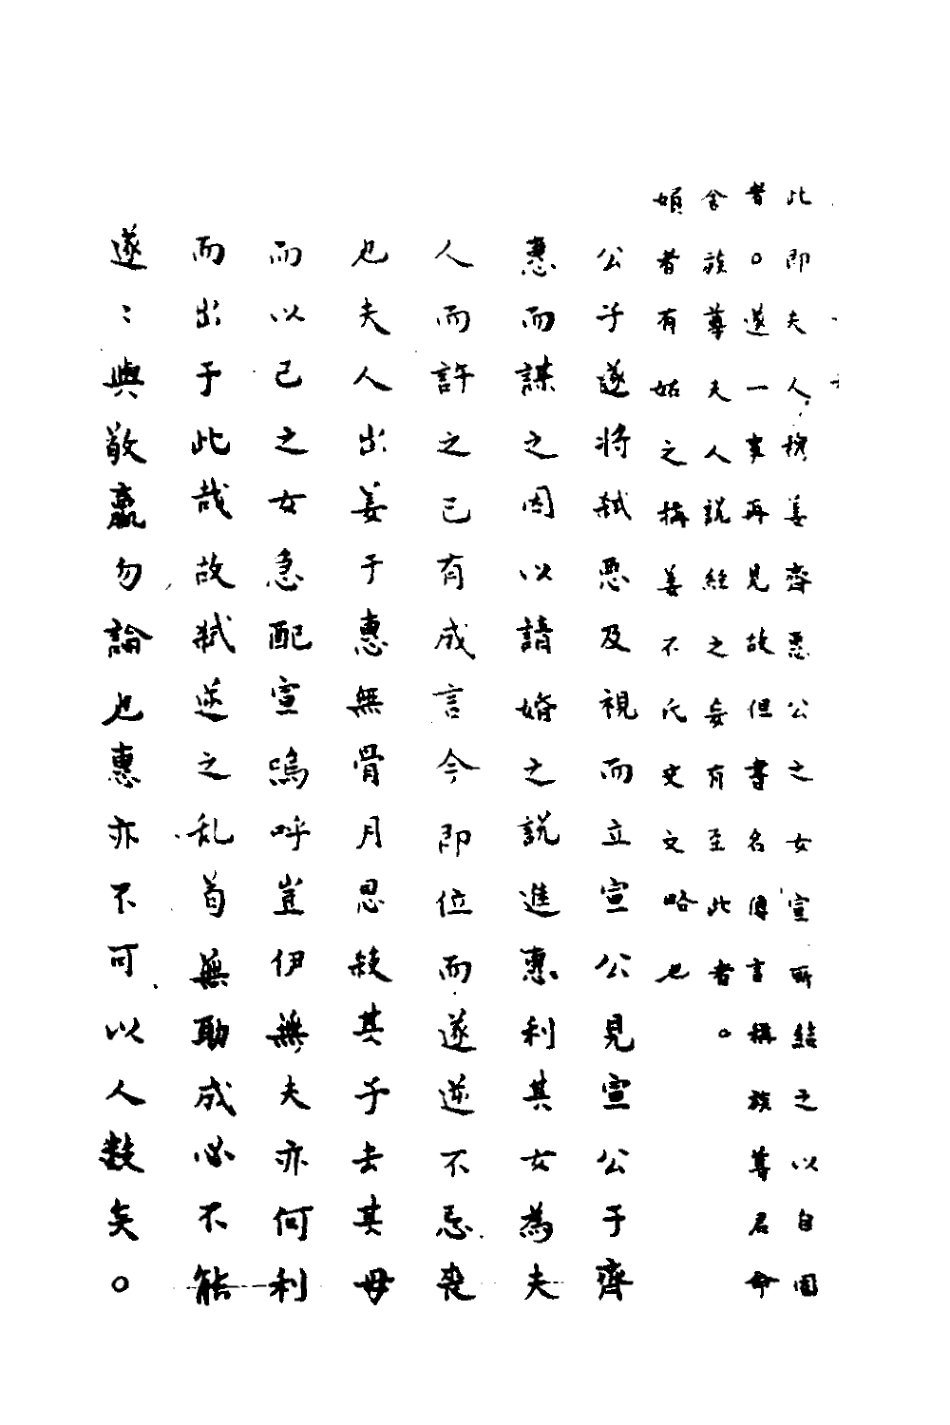 此即夫人穆姜齊惠公之女宣所結之以自固
者。遂一事再見故但書名傳言稱族尊君命
舍族尊夫人說經之妄有至此者。
媍者有姑之稱姜不氏史文略也
公子遂將弒惡及視而立宣公見宣公于齊
惠而謀之因以諳婚之說進惠利其女為夫
人而許之已有成言今即位而遂逆不忌喪
也夫人出姜于惠無骨月恩殺其子去其母
而以己之女急配宣嗚呼豈伊無夫亦何利
而出于此哉故弒逆之乱苟無助成必不能
遂：與敬嬴勿論也惠亦不可以人数矣。